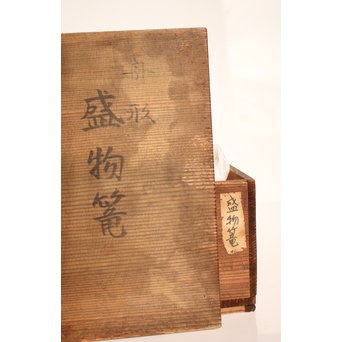 舟形
盛物篭
盛物篭